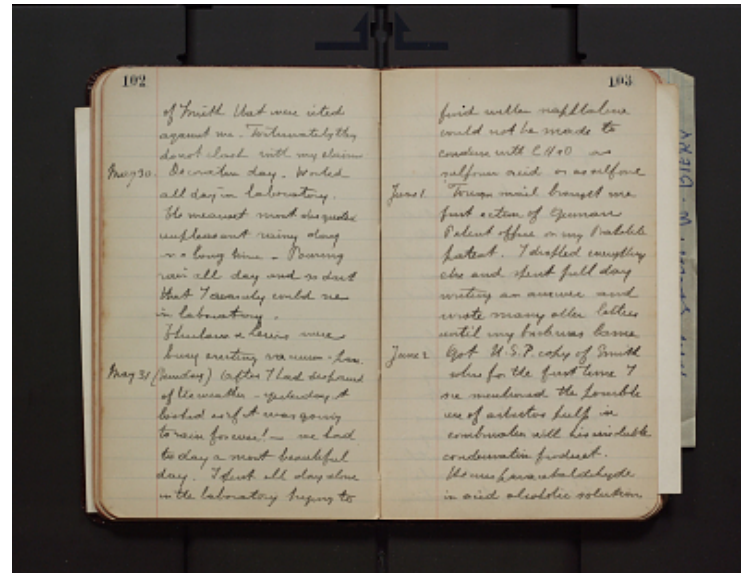 102
of Smith that were cited
against me. Fortunately they
do not clash with my claims
May 30. Decoration day. Worked
all day in laboratory.
The meanest most disgusted
unpleasant rainy day
in a long time. Pouring
rain all day and so dark
that I scarcely could see
in laboratory.
Thurlow & Lewis were
busy erecting vacuum
May 31 (Sunday) After I had despaired
of the weather - yesterday it
looked as if it was going
to rain forever! - we had
today a most beautiful
day. I spent all day alone
in the laboratory trying to
103
find out when naphtalene
could not be made to
condense with CH2O in
sulfuric acid or as sulfone
June 1 Foreign mail brought me
first action of German
Patent office on my Bakelite
patent. I dropped everything
else and spent full day
writing an answer and
wrote many other letters
until my hand was lame
June 2 Got U.S.P. copy of Smith
where for the first time I
see mentioned the possible
use of asbestos pulp in
combination with his insoluble
condensation product.
He uses paracetaldehyde
in acid alcoholic solution
W. DIERY